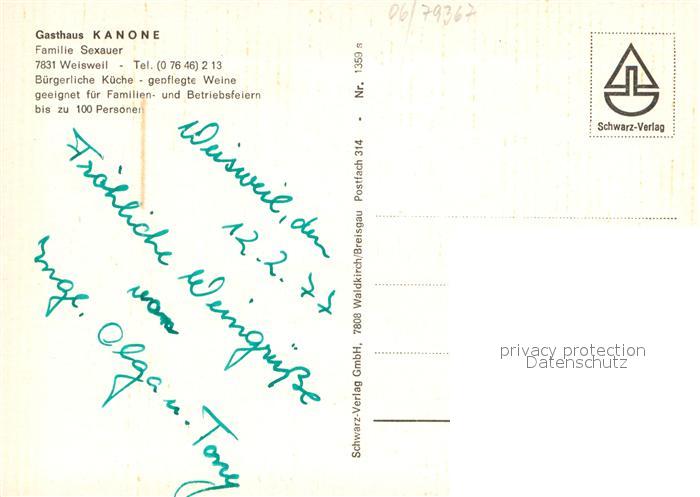 06/79367
Gasthaus KANONE
Familie Sexauer
7831 Weisweil - Tel. (0 76 46) 2 13
Bürgerliche Küche - gepflegte Weine
geeignet für Familien- und Betriebsfeiern
bis zu 100 Personen
Weisweil, den
12.2.77
Fröhliche Weingrüße
von
Inge, Olga u. Tony
Schwarz-Verlag GmbH, 7808 Waldkirch/Breisgau Postfach 314 - Nr. 1359 s
Schwarz-Verlag
privacy protection
Datenschutz